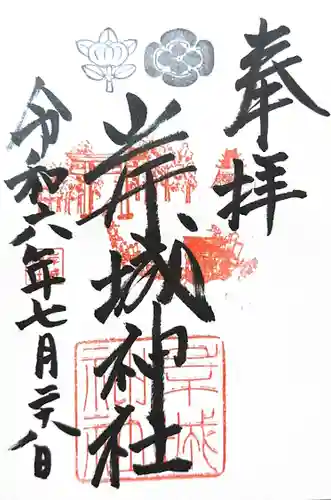 奉拝
岸城神社
令和六年七月二八日
岸城
神社